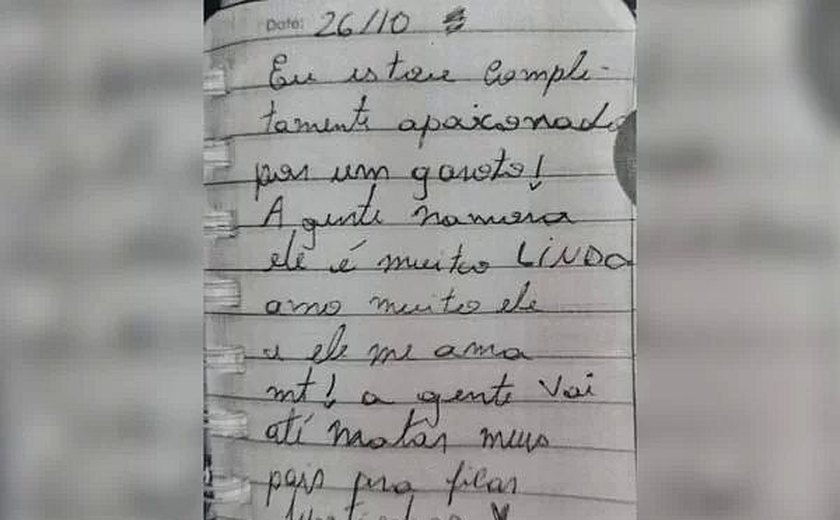 Date: 26/10
Eu estou comple-
tamente apaixonado
por um garoto!
A gente namora
ele é muito LINDO
amo muito ele
e ele me ama
mt! a gente vai
até matar meus
pais pra ficar